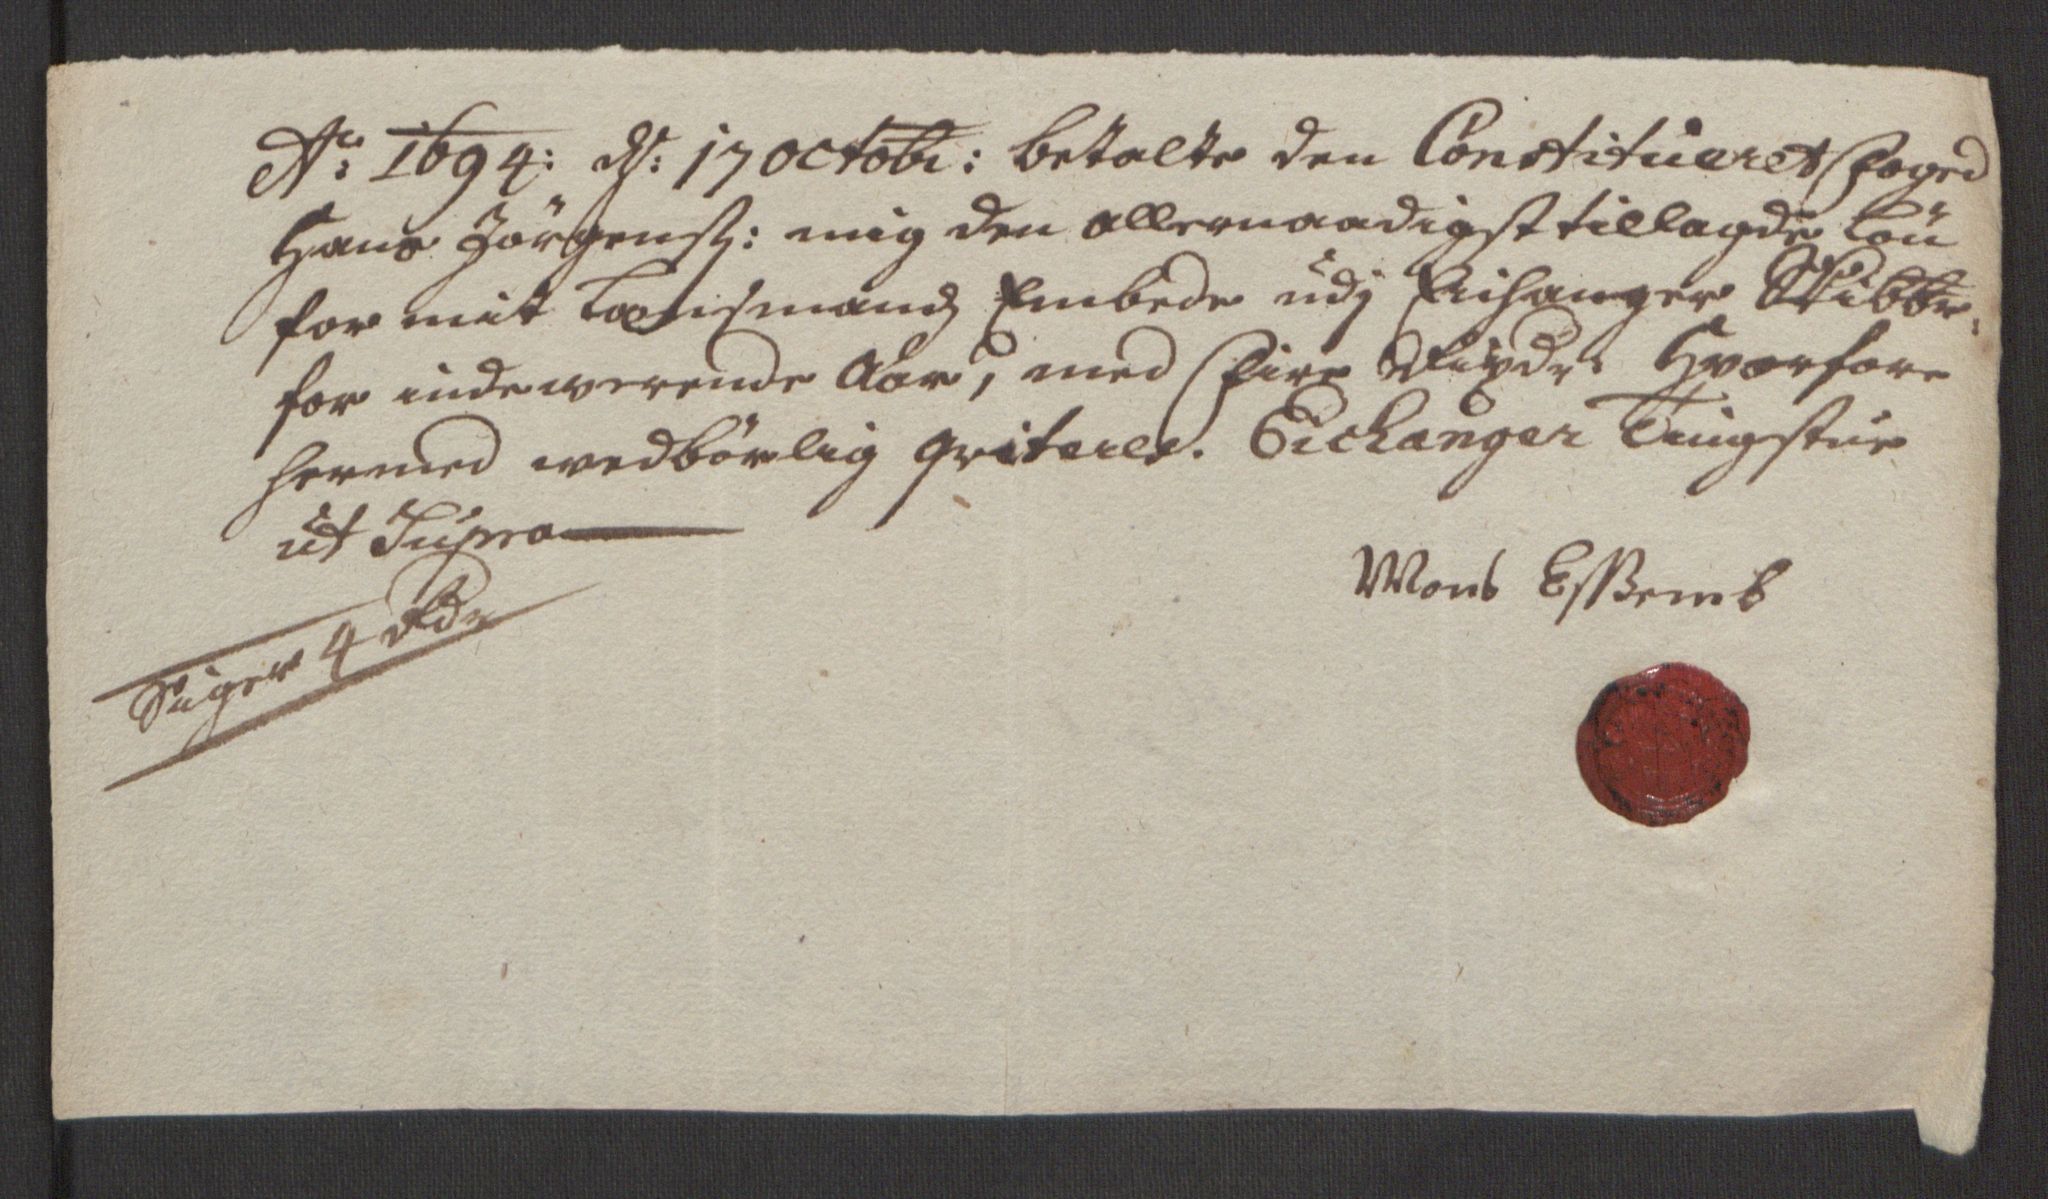 Ao: 1694: d: 17 octobr: betalte den Constitueret Foged
Hans Jörgens: mig den allernaadigst tillagde Løn
for mit Lensmands Embede udj Eishanger Skibbr:
for indewerende Aar, med Fire Rixdr: Hvorfore
hermed wedbörlig qviteres. Eichanger Tingstue
ut Supra
Siger 4 Rdr
Mons Essemb